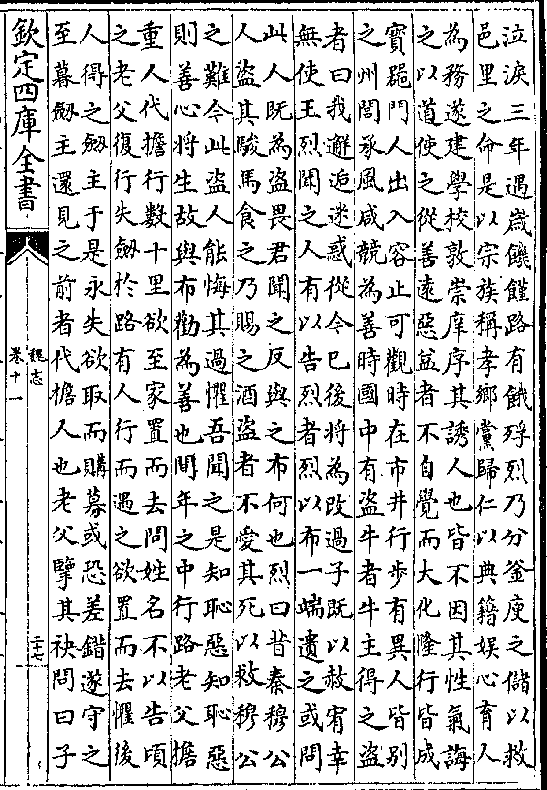 泣淚三年遇歲饑饉路有餓殍烈乃分釜庾之儲以救
邑里之命是以宗族稱孝鄉黨歸仁以典籍娛心育人
為務遂建學校敦崇庠序其誘人也皆不因其性氣誨
之以道使之從善遠惡益者不自覺而大化隆行皆成
寶噐門人出入容止可觀時在市井行步有異人皆別
之州閭承風咸競為善時國中有盜牛者牛主得之盜
者曰我邂逅迷惑從今已後將為改過子既以赦宥幸
無使王烈聞之人有以告烈者烈以布一端遺之或問
此人既為盜畏君聞之反與之布何也烈曰昔秦穆公
人盜其駿馬食之乃賜之酒盜者不愛其死以救穆公
之難今此盜人能悔其過懼吾聞之是知恥惡知恥惡
則善心將生故與布勸為善也間年之中行路老父擔
重人代擔行數十里欲至家置而去問姓名不以告頃
之老父復行失劒於路有人行而遇之欲置而去懼後
人得之劒主于是永失欲取而購募或恐差錯遂守之
至暮劒主還見之前者代擔人也老父擥其袂問曰子
欽定四庫全書
魏志
卷十一
二十七